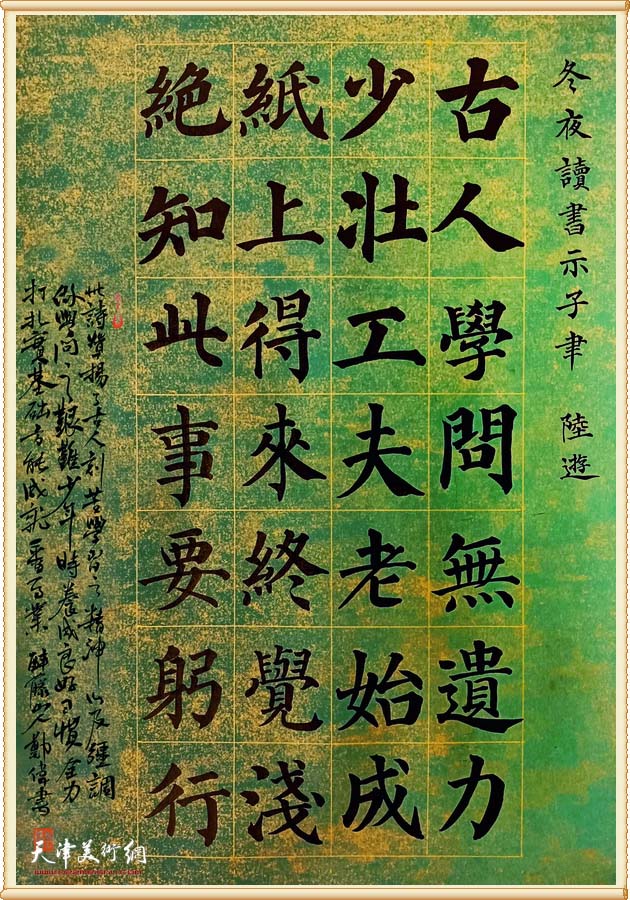 冬夜讀書示子聿 陸遊
古人學問無遺力
少壯工夫老始成
紙上得來終覺淺
絕知此事要躬行
此詩贊揚了古人刻苦學習之精神以及經調
做學問之艱難少年時養成良好習慣全力
打扎實基础方能成就一番事業 醉 鄭偉書
天津美術網